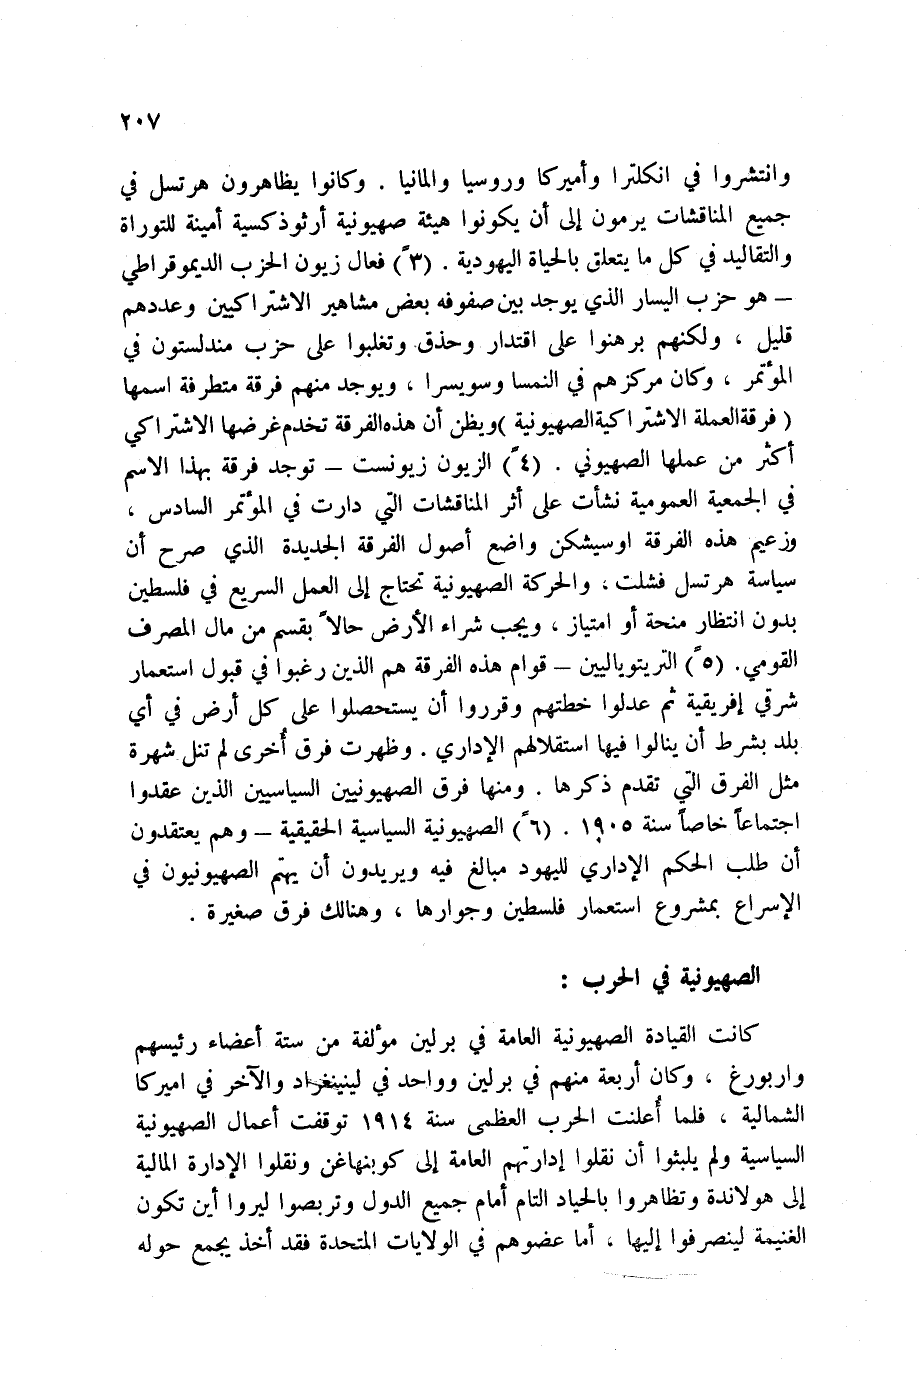 ٢٠٧
وانتشروا في انكلترا وأميركا وروسيا والمانيا . وكانوا يظاهرون هرتسل في
جميع المناقشات يرمون إلى أن يكونوا هيئة صهيونية أرثوذكسية أمينة للتوراة
والتقاليد في كل ما يتعلق بالحياة اليهودية . (٣ً) فعال زيون الحزب الديموقراطي
– هو حزب اليسار الذي يوجد بين صفوفه بعض مشاهير الاشتراكيين وعددهم
قليل ، ولكنهم برهنوا على اقتدار وحذق وتغلبوا على حزب مندلستون في
المؤتمر ، وكان مركزهم في النمسا وسويسرا ، ويوجد منهم فرقة متطرفة اسمها
( فرقة العملة الاشتراكية الصهيونية ) ويظن أن هذه الفرقة تخدم غرضها الاشتراكي
أكثر من عملها الصهيوني . (٤ً) الزيون زيونست – توجد فرقة بهذا الاسم
في الجمعية العمومية نشأت على أثر المناقشات التي دارت في المؤتمر السادس ،
وزعيم هذه الفرقة اوسيشكن واضع أصول الفرقة الجديدة الذي صرح أن
سياسة هرتسل فشلت ، والحركة الصهيونية تحتاج إلى العمل السريع في فلسطين
بدون انتظار منحة أو امتياز ، ويجب شراء الأرض حالاً بقسم من مال المصرف
القومي. (٥ً) التريتوياليين – قوام هذه الفرقة هم الذين رغبوا في قبول استعمار
شرقي إفريقية ثم عدلوا خطتهم وقرروا أن يستحصلوا على كل أرض في أي
بلد بشرط أن ينالوا فيها استقلالهم الإداري . وظهرت فرق أُخرى لم تنل شهرة
مثل الفرق التي تقدم ذكرها . ومنها فرق الصهيونيين السياسيين الذين عقدوا
اجتماعاً خاصاً سنة ١٩٠٥ . (٦ً) الصهيونية السياسية الحقيقية – وهم يعتقدون
أن طلب الحكم الإداري لليهود مبالغ فيه ويريدون أن يهتم الصهيونيون في
الإسراع بمشروع استعمار فلسطين وجوارها ، وهنالك فرق صغيرة .
الصهيونية في الحرب :
كانت القيادة الصهيونية العامة في برلين مؤلفة من ستة أعضاء رئيسهم
واربورغ ، وكان أربعة منهم في برلين وواحد في لينينغراد والآخر في اميركا
الشمالية ، فلما أُعلنت الحرب العظمى سنة ١٩١٤ توقفت أعمال الصهيونية
السياسية ولم يلبثوا أن نقلوا إدارتهم العامة إلى كوبنهاغن ونقلوا الإدارة المالية
إلى هولاندة وتظاهروا بالحياد التام أمام جميع الدول وتربصوا ليروا أين تكون
الغنيمة لينصرفوا إليها ، أما عضوهم في الولايات المتحدة فقد أخذ يجمع حوله